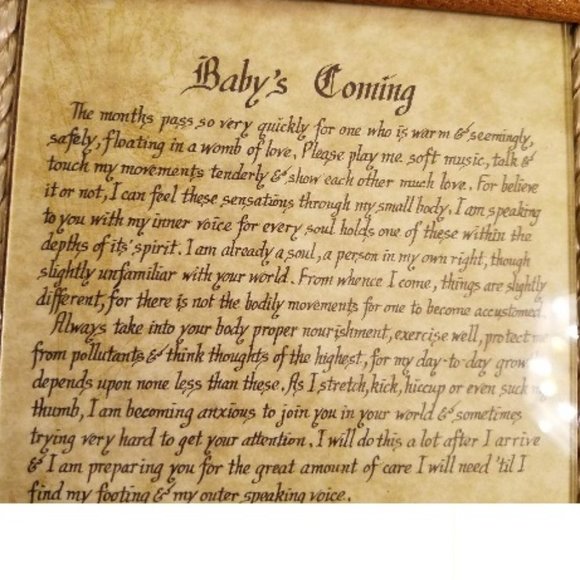 Baby's Coming
The months pass so very quickly for one who is warm & seemingly,
safely, floating in a womb of love. Please play me soft music, talk &
touch my movements tenderly & show each other much love. For believe
it or not, I can feel these sensations through my small body. I am speaking
to you with my inner voice for every soul holds one of these within the
depths of its' spirit. I am already a soul, a person in my own right, though
slightly unfamiliar with your world. From whence I come, things are slightly
different, for there is not the bodily movements for one to become accustomed.
Always take into your body proper nourishment, exercise well, protect me
from pollutants & think thoughts of the highest, for my day-to-day growth
depends upon none less than these. As I stretch, kick, hiccup or even suck my
thumb, I am becoming anxious to join you in your world & sometimes
trying very hard to get your attention. I will do this a lot after I arrive
& I am preparing you for the great amount of care I will need 'til I
find my footing & my outer speaking voice.